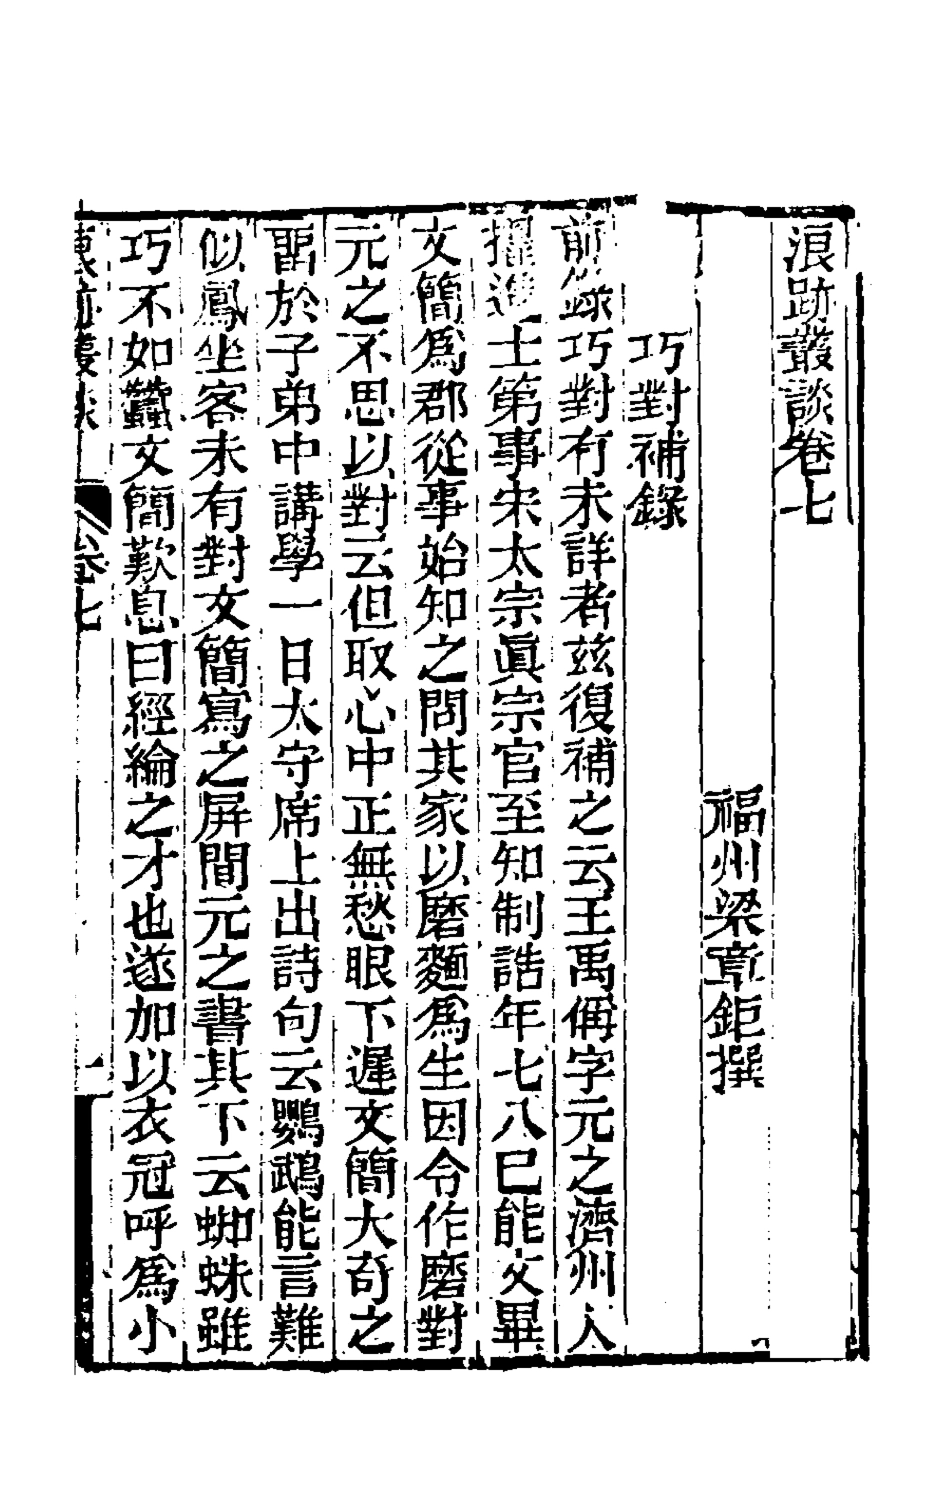 浪跡叢談卷七
福州梁章鉅撰
巧對補錄
前錄巧對有未詳者玆復補之云王禹偁字元之濟州人
擢進士第事宋太宗眞宗官至知制誥年七八已能文畢
文簡爲郡從事始知之問其家以磨麵爲生因令作磨對
元之不思以對云但取心中正無愁眼下遲文簡大奇之
畱於子弟中講學一日太守席上出詩句云鸚鵡能言難
似鳳坐客未有對文簡寫之屏間元之書其下云蜘蛛雖
巧不如蠶文簡歎息曰經綸之才也遂加以衣冠呼爲小
浪跡叢談 卷七 一